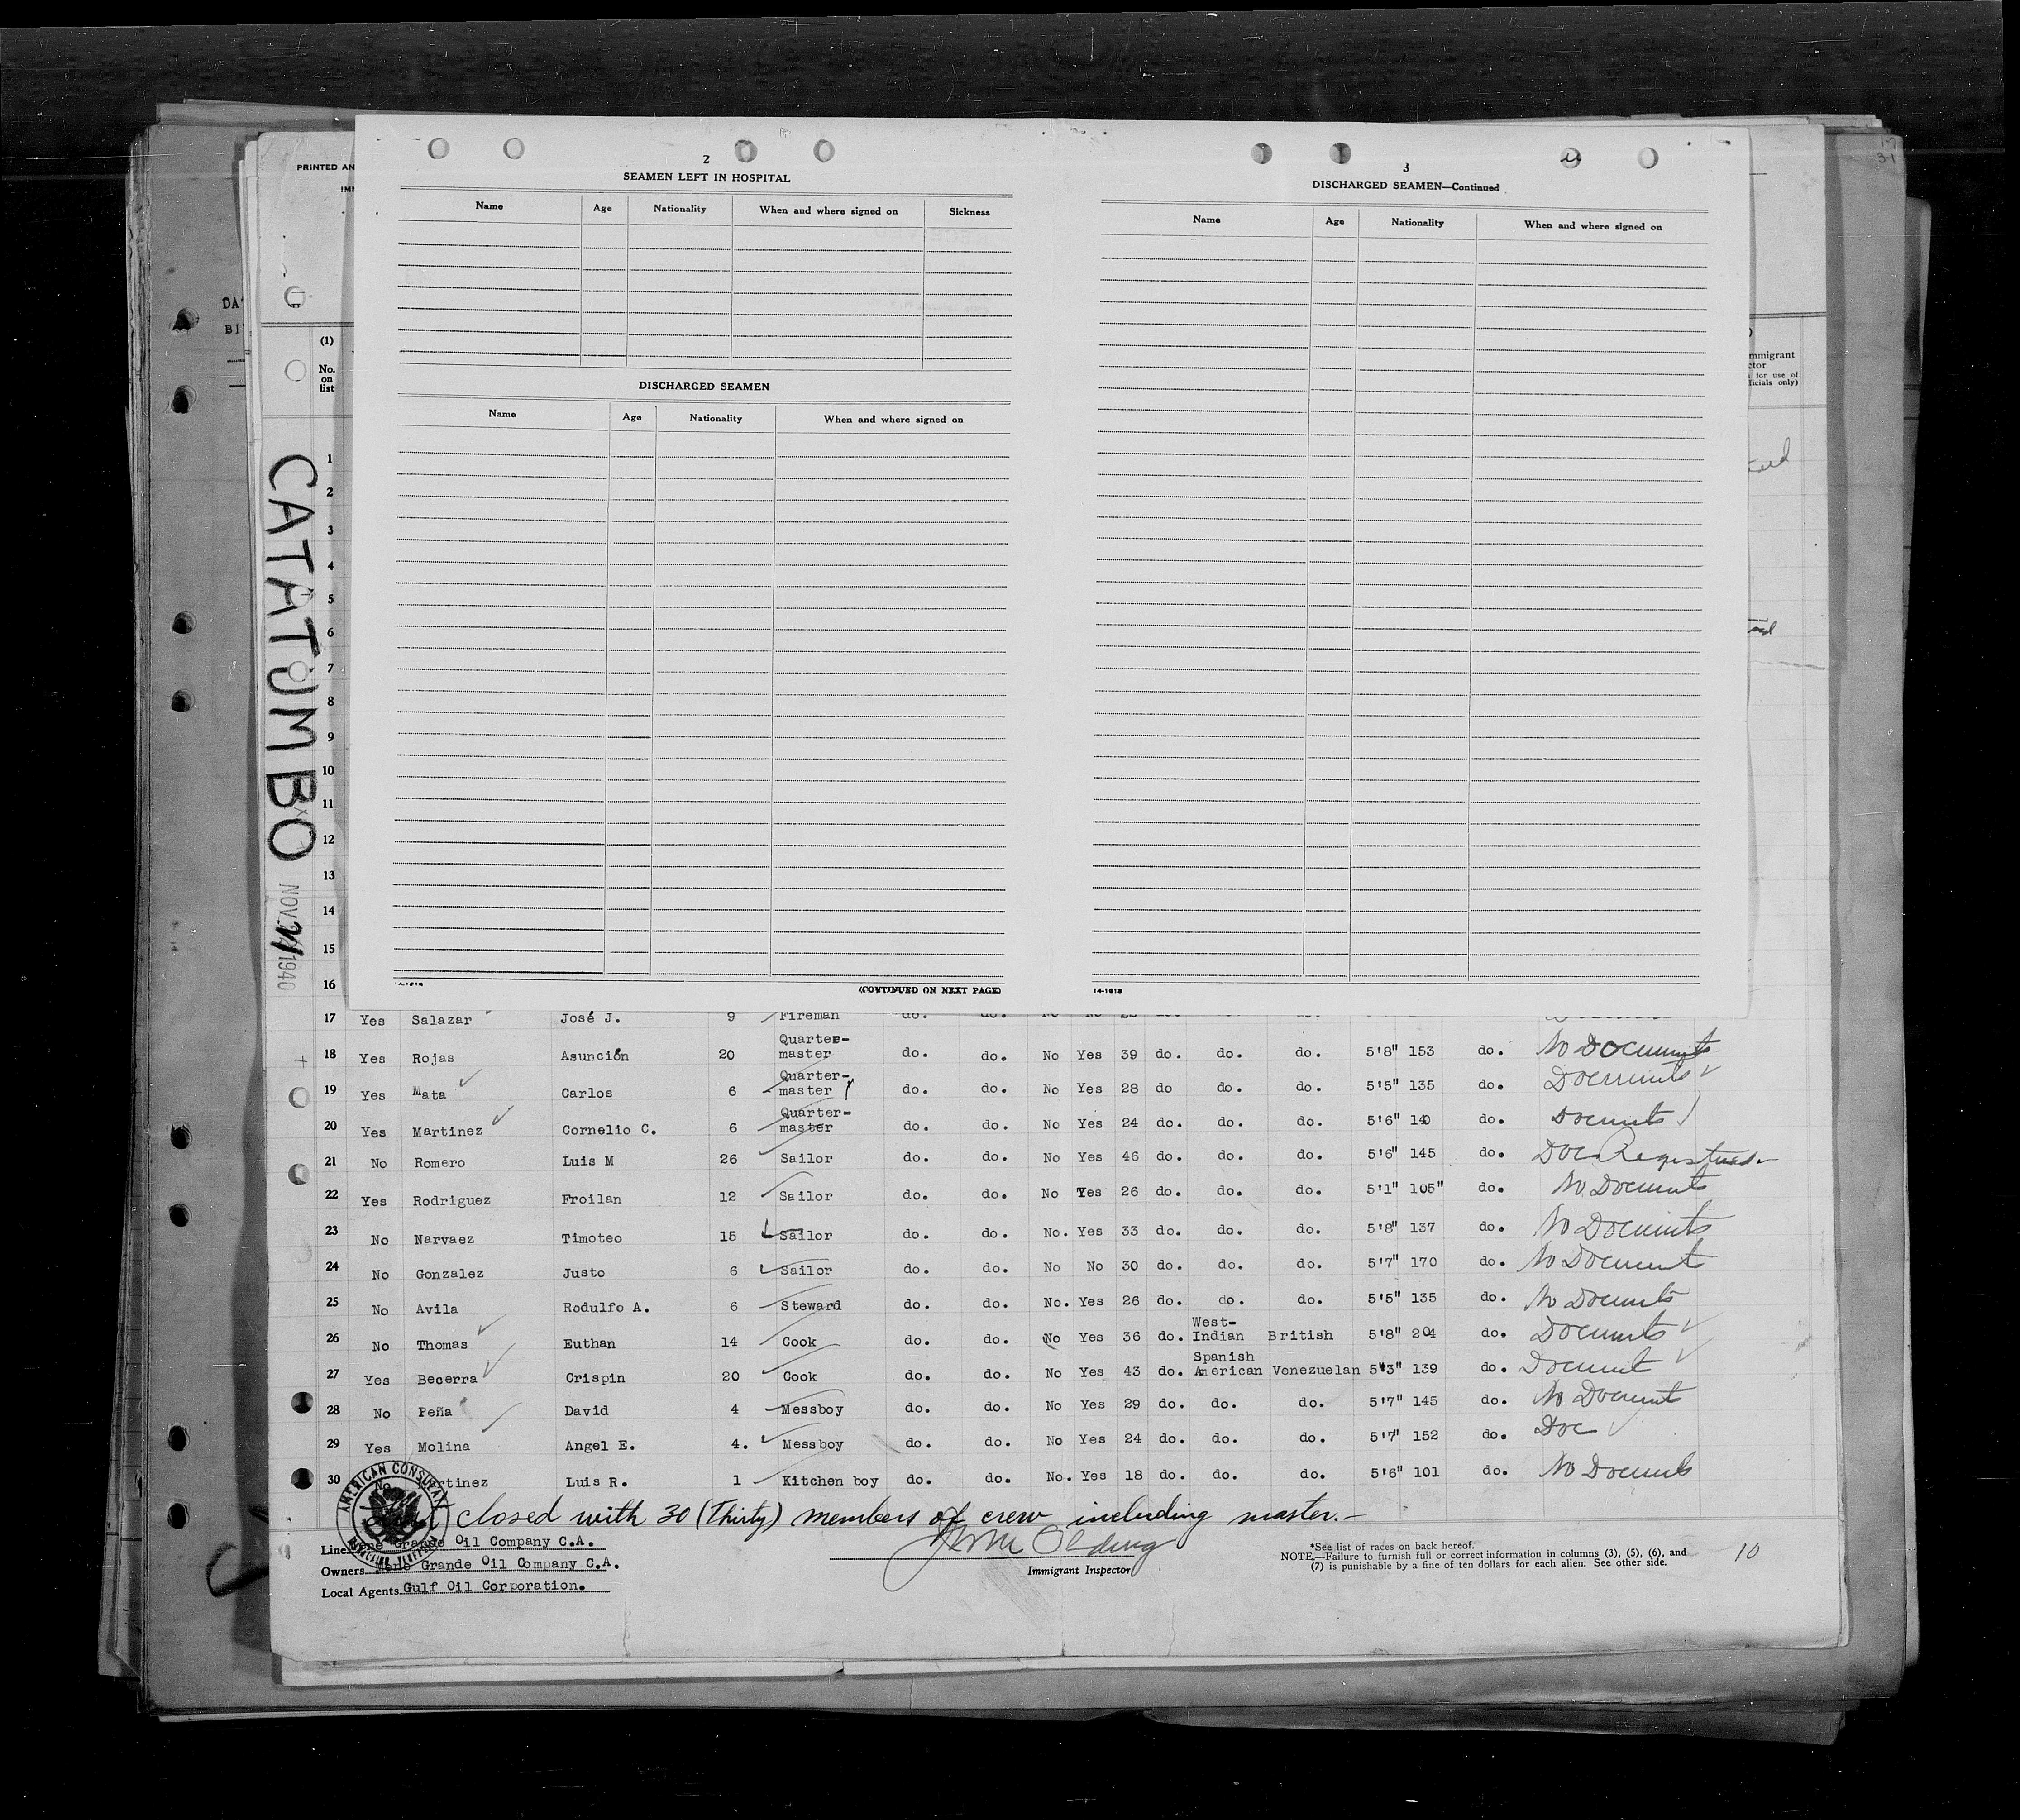 2
SEAMEN LEFT IN HOSPITAL
Name Age Nationality When and where signed on Sickness
DISCHARGED SEAMEN
Name Age Nationality When and where signed on
(CONTINUED ON NEXT PAGE)
3
DISCHARGED SEAMEN—Continued
Name Age Nationality When and where signed on
14-1618
PRINTED AN
IMM
DA
BI
(1)
No. on list
mmigrant
ctor
for use of
ficials only)
CATATUMBO
NOV 1940
1
2
3
4
5
6
7
8
9
10
11
12
13
14
15
16
17 Yes Salazar José J. 9 Fireman do. do.
18 Yes Rojas Asunción 20 Quarter-master do. do. No Yes 39 do. do. do. 5'8" 153 do. No Documents
19 Yes Mata Carlos 6 Quarter-master do. do. No Yes 28 do do. do. 5'5" 135 do. Documents
20 Yes Martinez Cornelio C. 6 Quarter-master do. do. No Yes 24 do. do. do. 5'6" 140 do. Documents
21 No Romero Luis M 26 Sailor do. do. No Yes 46 do. do. do. 5'6" 145 do. Doc Registered
22 Yes Rodriguez Froilan 12 Sailor do. do. No Yes 26 do. do. do. 5'1" 105" do. No Documents
23 No Narvaez Timoteo 15 Sailor do. do. No. Yes 33 do. do. do. 5'8" 137 do. No Documents
24 No Gonzalez Justo 6 Sailor do. do. No No 30 do. do. do. 5'7" 170 do. No Document
25 No Avila Rodulfo A. 6 Steward do. do. No. Yes 26 do. do. do. 5'5" 135 do. No Documents
26 No Thomas Euthan 14 Cook do. do. No Yes 36 do. West-Indian British 5'8" 204 do. Documents
27 Yes Becerra Crispin 20 Cook do. do. No Yes 43 do. Spanish American Venezuelan 5'3" 139 do. Document
28 No Peña David 4 Messboy do. do. No Yes 29 do. do. do. 5'7" 145 do. No Document
29 Yes Molina Angel E. 4. Messboy do. do. No Yes 24 do. do. do. 5'7" 152 do. Doc
30 No rtinez Luis R. 1 Kitchen boy do. do. No. Yes 18 do. do. do. 5'6" 101 do. No Documents
AMERICAN CONSULAR
closed with 30 (Thirty) members of crew including master.—
Line Mene Grande Oil Company C.A.
Owners Mene Grande Oil Company C.A.
Local Agents Gulf Oil Corporation.
Immigrant Inspector
*See list of races on back hereof.
NOTE.—Failure to furnish full or correct information in columns (3), (5), (6), and
(7) is punishable by a fine of ten dollars for each alien. See other side.
10